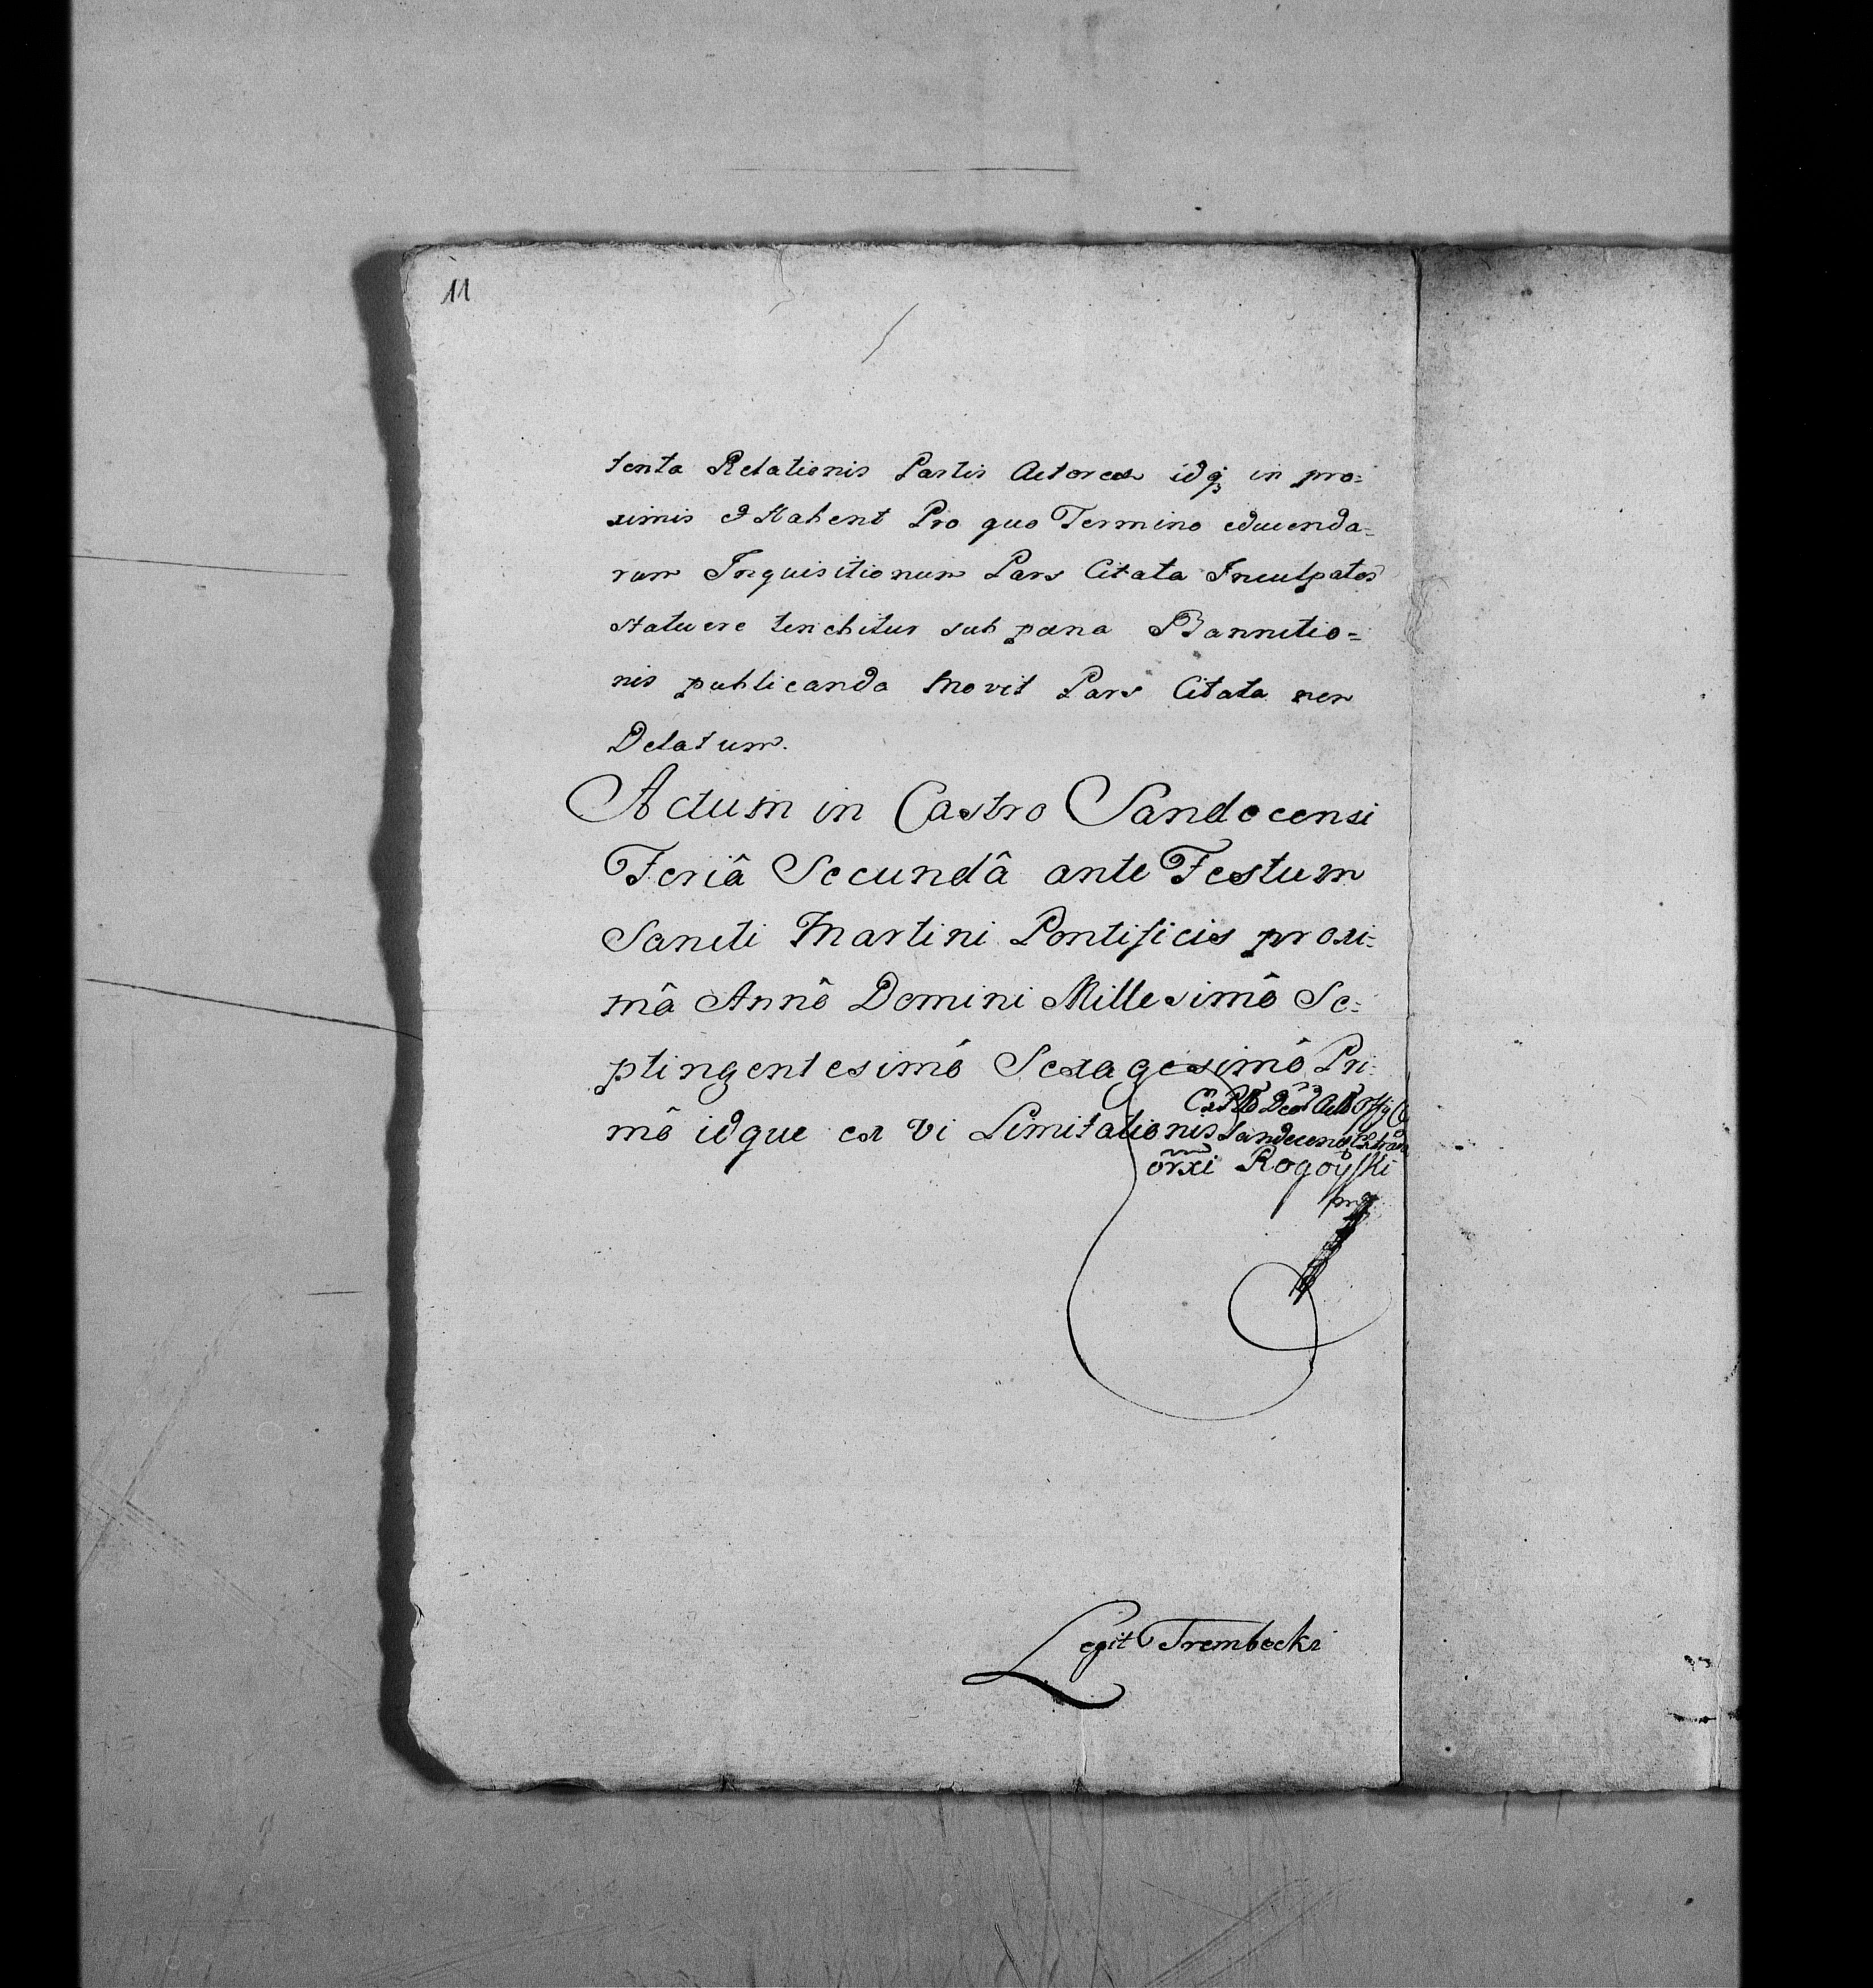 11
tenta Relationis Partis Actoreæ idq; in pro=
ximis & Habent Pro quo Termino educenda=
rum Inquisitionum Pars Citata Inculpatos
statuere tenebitur sub pœna Bannitio=
nis publicanda Movit Pars Citata non
Delatum.
Actum in Castro Sandecensi
Feriâ Secundâ ante Festum
Sancti Martini Pontificis proxi=
mâ Annô Domini Millesimô Se=
ptingentesimô Sexagesimô Pri=
mô idque ex vi Limitationis
Sandecens
Rogoÿski
Legit Trembecki